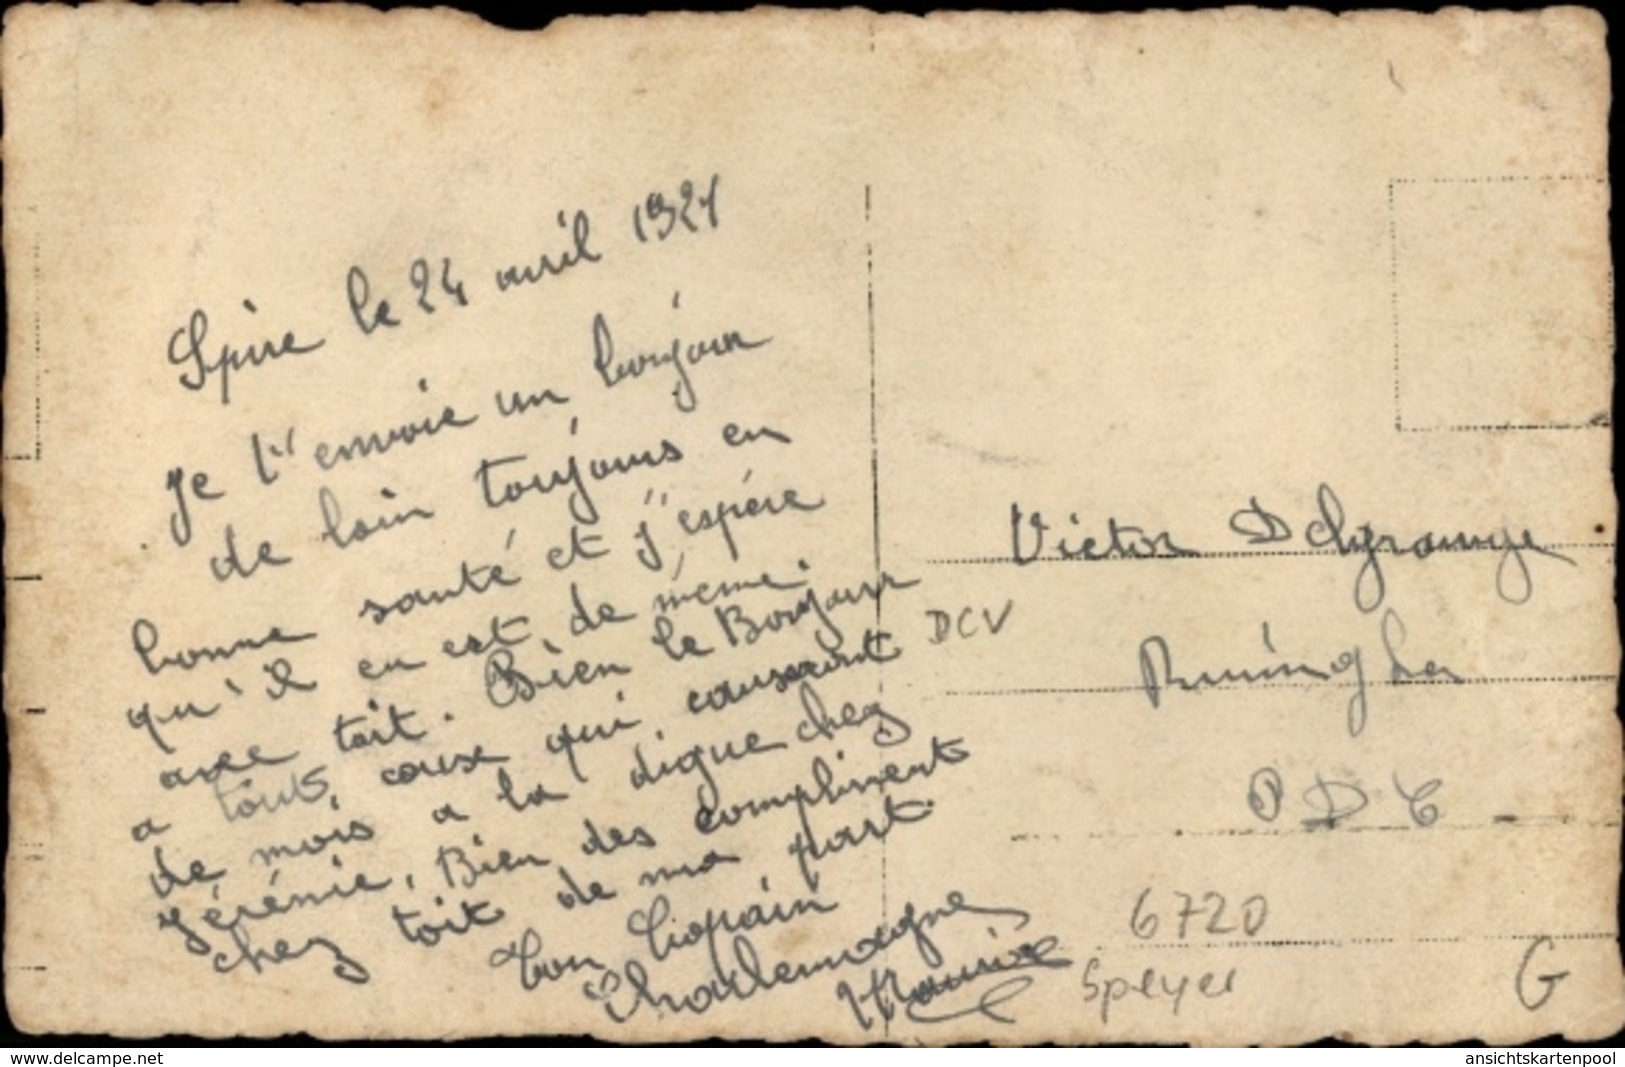 Spire le 24 avril 1921
Je t'envoie un bonjour
de loin toujours en
bonne santé et j'espére
qu'il en est de même
avec toit. Bien le Bonjour
a tout ceux qui causeront
de mois a la digue chez
Jérémie, Bien des compliment
chez toit de ma part.
ton Copain
Charlemagne
Maurice
Victor Delgrange
DCV
Ruminghem
P D C
6720
Speyer
G
www.delcampe.net
ansichtskartenpool